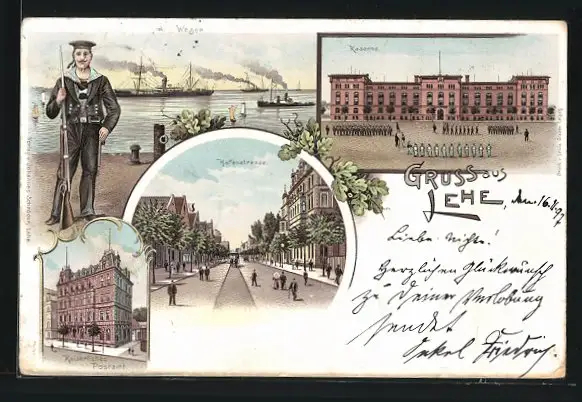 Weser
Kaserne
Hafenstrasse
GRUSS aus
LEHE
, den 16. 8. 97
Liebe Nichte!
Herzlichen Glückwunsch
zu Deiner Verlobung
sendet
Onkel Friedrich.
Postamt